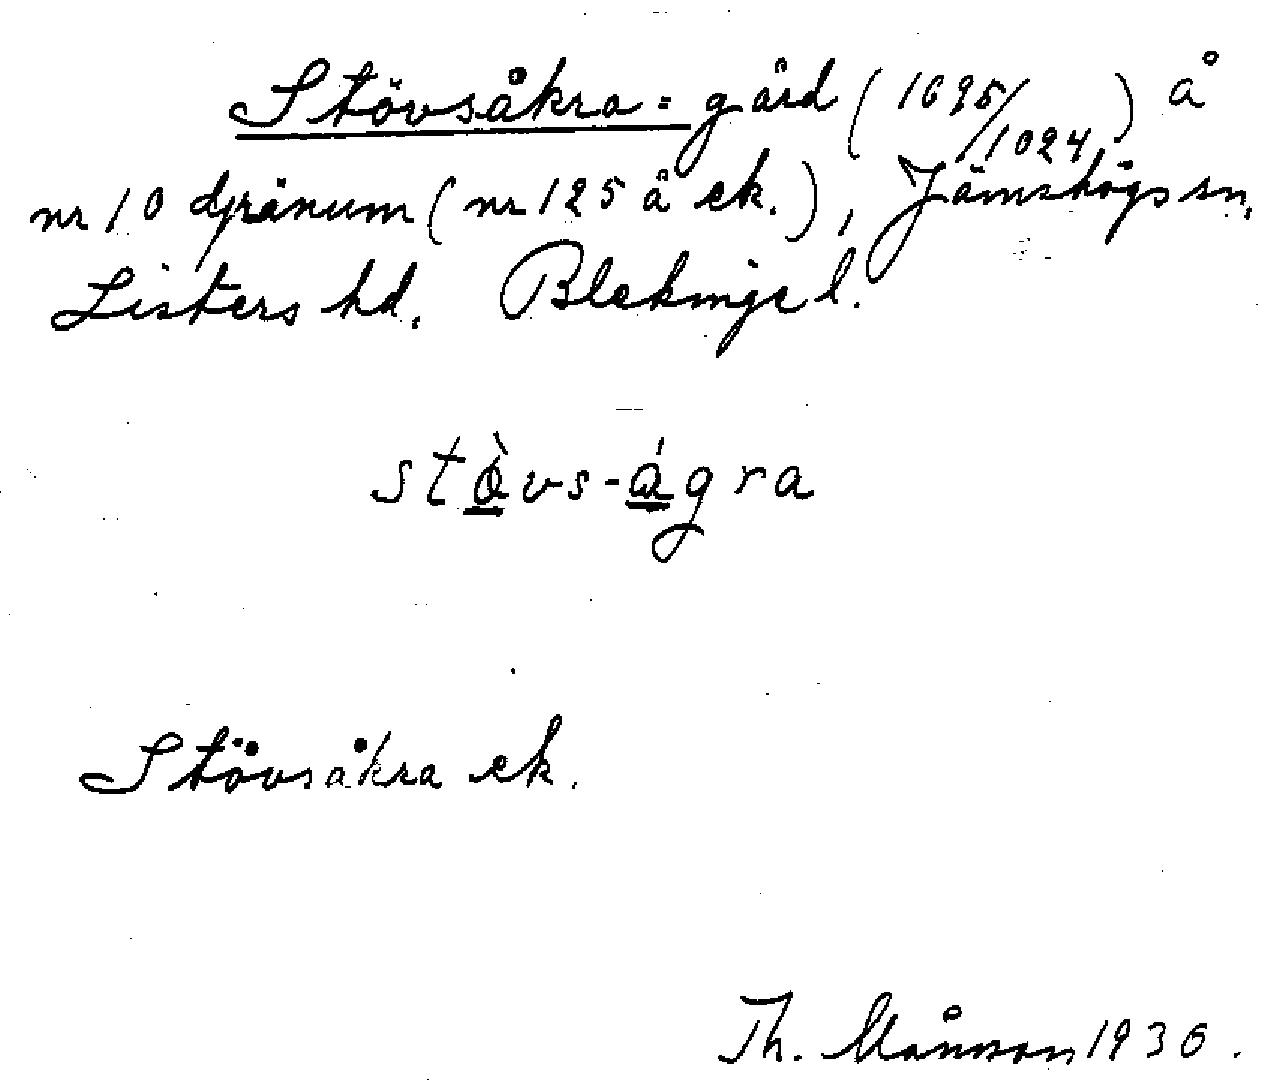 Stövsåkra = gård (1695/1024) å
nr 10 Gränum (nr 125 å ek.), Jämshögs sn,
Listers hd. Blekinge l.
stòvs-ágra
Stövsåkra ek.
Th. Månsson 1936.